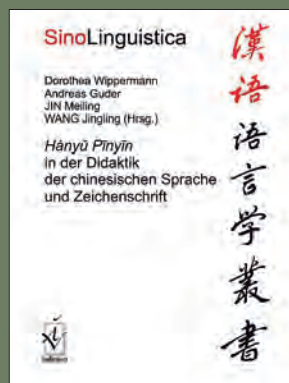 SinoLinguistica
Dorothea Wippermann
Andreas Guder
JIN Meiling
WANG Jingling (Hrsg.)
Hànyǔ Pīnyīn
in der Didaktik
der chinesischen Sprache
und Zeichenschrift
漢語語言学叢書